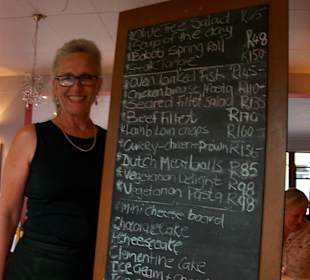 *Olive Tree Salad R75
*Soup of the day
*Boboti Spring Roll R48
R150
*Oven baked Fish R145-
*Chicken
*Seared Fillet Salad R135
*Beef Fillet R170
*Lamb Loin chops R160
*Curry - chicken + prawn R135-
*Dutch Meatballs R85
*Vegetarian Delight R98
*Vegetarian Pasta R98
*Mini cheese board
Chocolate Cake
Cheesecake
Clementine Cake
Ice Cream +